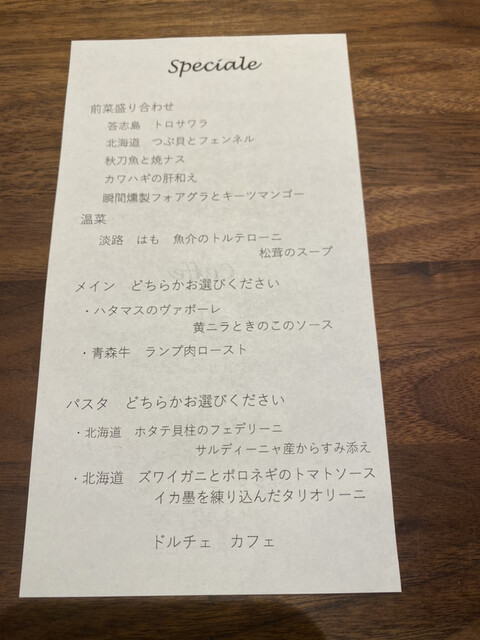 Speciale
前菜盛り合わせ
答志島　トロサワラ
北海道　つぶ貝とフェンネル
秋刀魚と焼ナス
カワハギの肝和え
瞬間燻製フォアグラとキーツマンゴー
温菜
淡路　はも　魚介のトルテローニ
松茸のスープ
メイン　どちらかお選びください
・ハタマスのヴァポーレ
黄ニラときのこのソース
・青森牛　ランプ肉ロースト
パスタ　どちらかお選びください
・北海道　ホタテ貝柱のフェデリーニ
サルディーニャ産からすみ添え
・北海道　ズワイガニとポロネギのトマトソース
イカ墨を練り込んだタリオリーニ
ドルチェ　カフェ